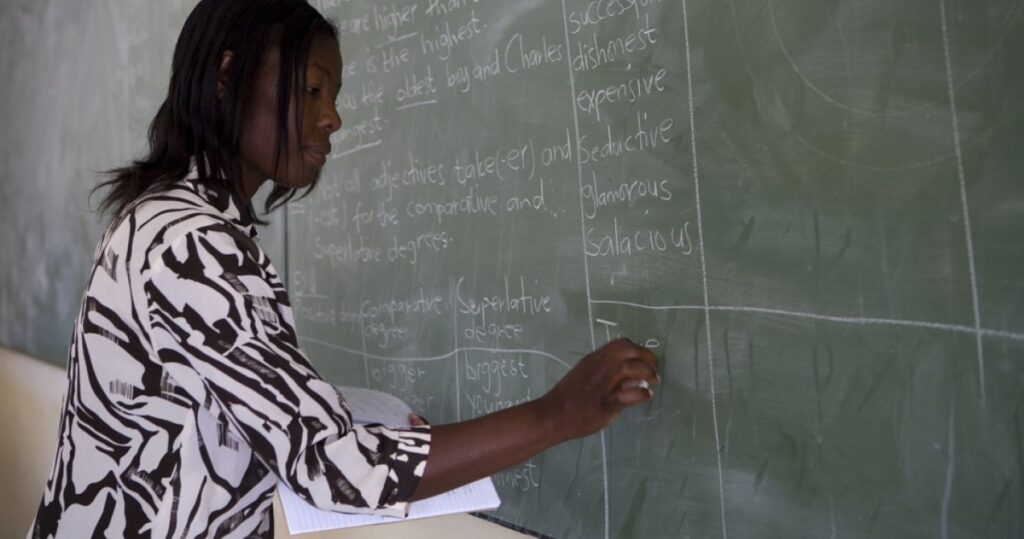 are higher than
is the highest.
as the oldest boy and Charles
Not all adjectives take (-er) and
(-est) for the comparative and
Superlative degrees.
Comparative
degree
bigger
Superlative
degree
biggest
dishonest
expensive
Seductive
glamorous
Salacious